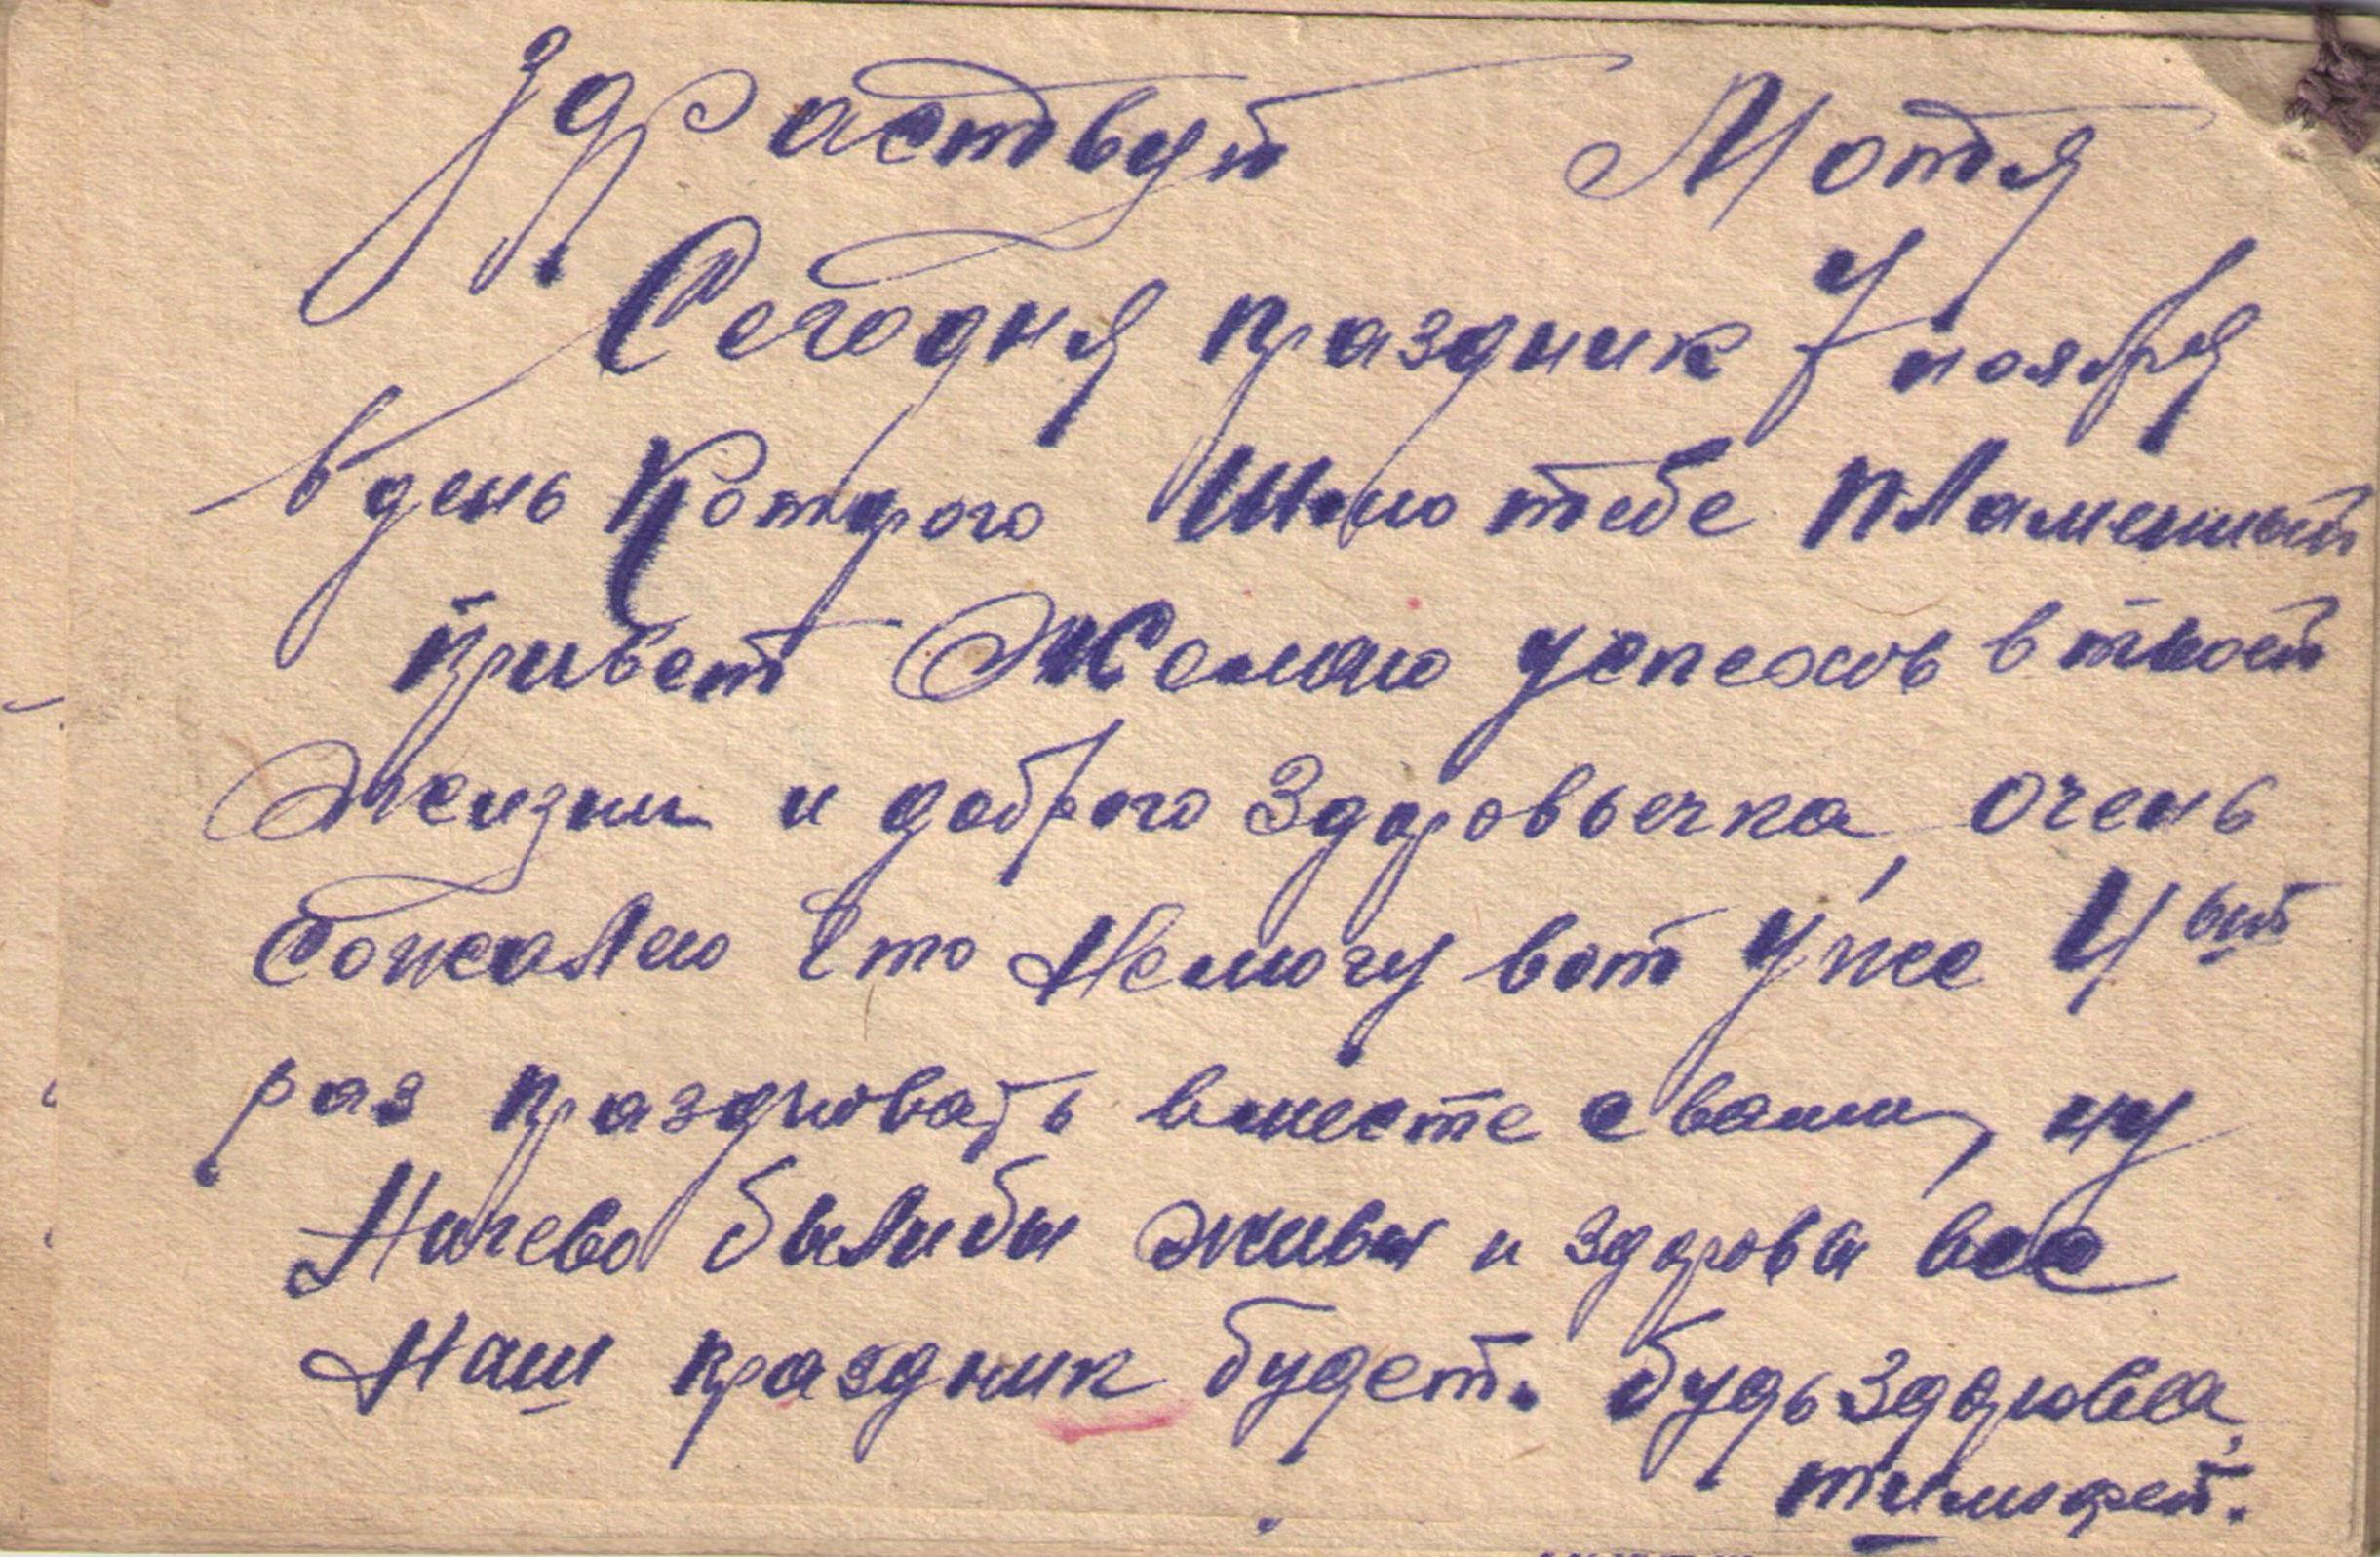 Здраствуй Мотя
Сегодня праздник 7 ноября
в день Которого Шлю тебе Пламенный
Привет Желаю успехов в твоей
Жизни и доброго Здоровьечка, очень
Сожалею Что Немогу вот уже 4ый
раз праздновать вместе свами, ну
Ничево былибы живы и здоровы все
Наш праздник будет. будь Здорова,
тимофей.